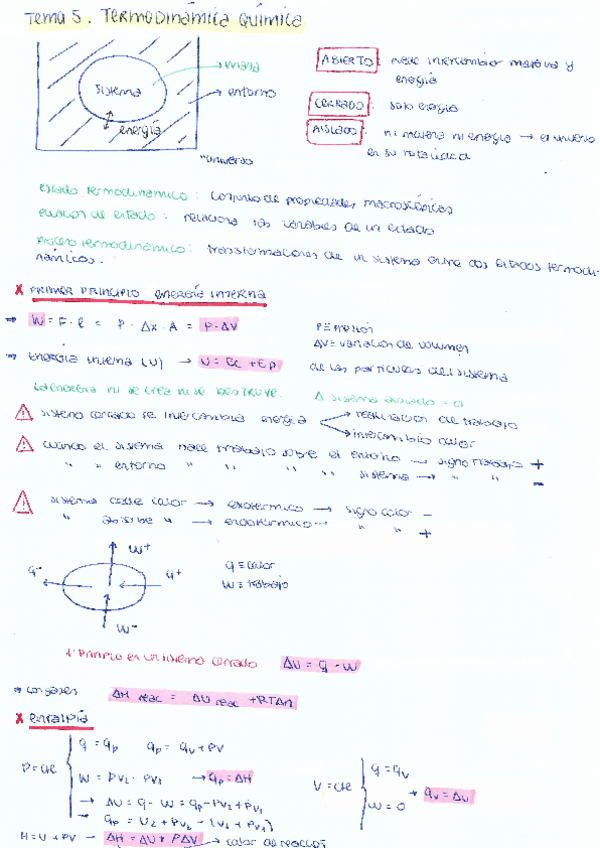 Tema 5. TERMODINÁMICA QUÍMICA
masa
sistema
entorno
energía
"universo
ABIERTO: hace intercambio materia y
energía
CERRADO: solo energía
AISLADO: ni materia ni energía → el universo
en su totalidad
Estado termodinámico: conjunto de propiedades macroscópicas
ecuación de estado: relaciona las variables de un estado
proceso termodinámico: transformaciones de un sistema entre dos estados termodi-
námicos.
X PRIMER PRINCIPIO ENERGÍA INTERNA
→ W = F · e = P · Δx · A = P · ΔV
P ≡ presión
ΔV = variación de volumen
→ Energía interna (U) → U = Ec + Ep de las partículas del sistema
La energía ni se crea ni se DESTRUYE. Δ sistema aislado = 0
sistema cerrado se intercambia energía → realización de trabajo
→ intercambio calor
cuando el sistema hace trabajo sobre el entorno → signo trabajo = +
" " entorno " " " " sistema → " " -
sistema cede calor → exotérmico → signo calor -
" absorbe " → endotérmico → " " +
W+
q- q+
W-
q ≡ calor
W ≡ trabajo
1º Principio en un sistema cerrado ΔU = q - W
→ con gases ΔH reac = ΔU reac + RTΔn
X ENTALPÍA
P = cte
q = qp qp = qv + PV
W = PV2 - PV1 → qp = ΔH
→ ΔU = q - W = qp - PV2 + PV1
→ qp = U2 + PV2 - (U1 + PV1)
V = cte
q = qv
W = 0
→ qv = ΔU
H = U + PV → ΔH = ΔU + PΔV → calor de reacción